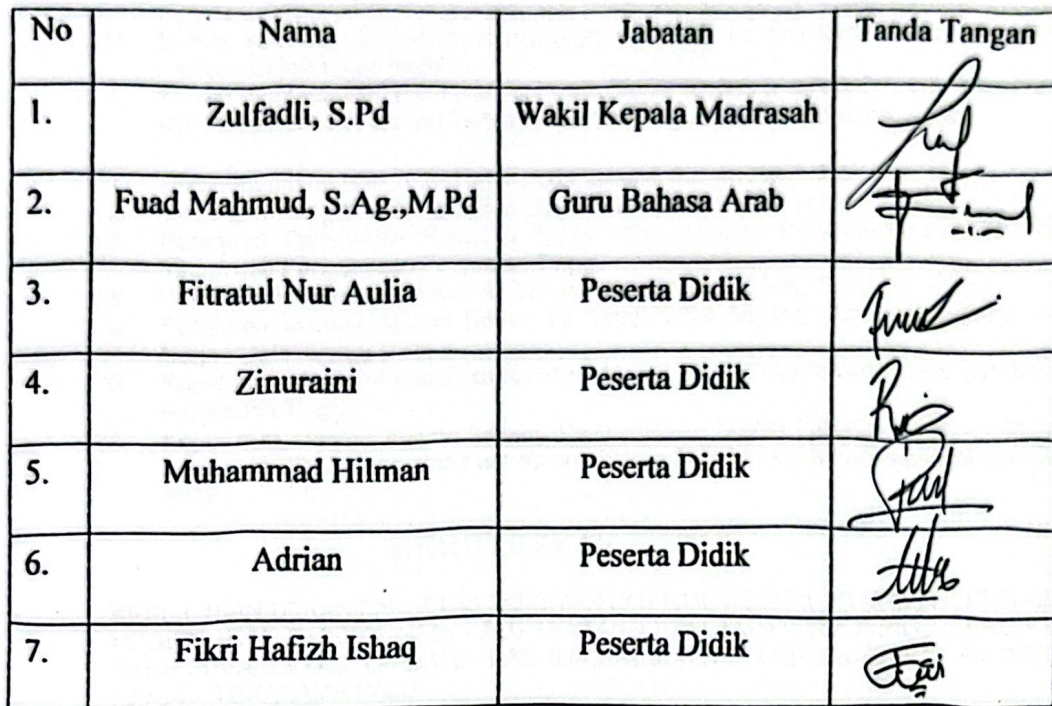 No Nama Jabatan Tanda Tangan
1. Zulfadli, S.Pd Wakil Kepala Madrasah
2. Fuad Mahmud, S.Ag.,M.Pd Guru Bahasa Arab
3. Fitratul Nur Aulia Peserta Didik
4. Zinuraini Peserta Didik
5. Muhammad Hilman Peserta Didik
6. Adrian Peserta Didik
7. Fikri Hafizh Ishaq Peserta Didik